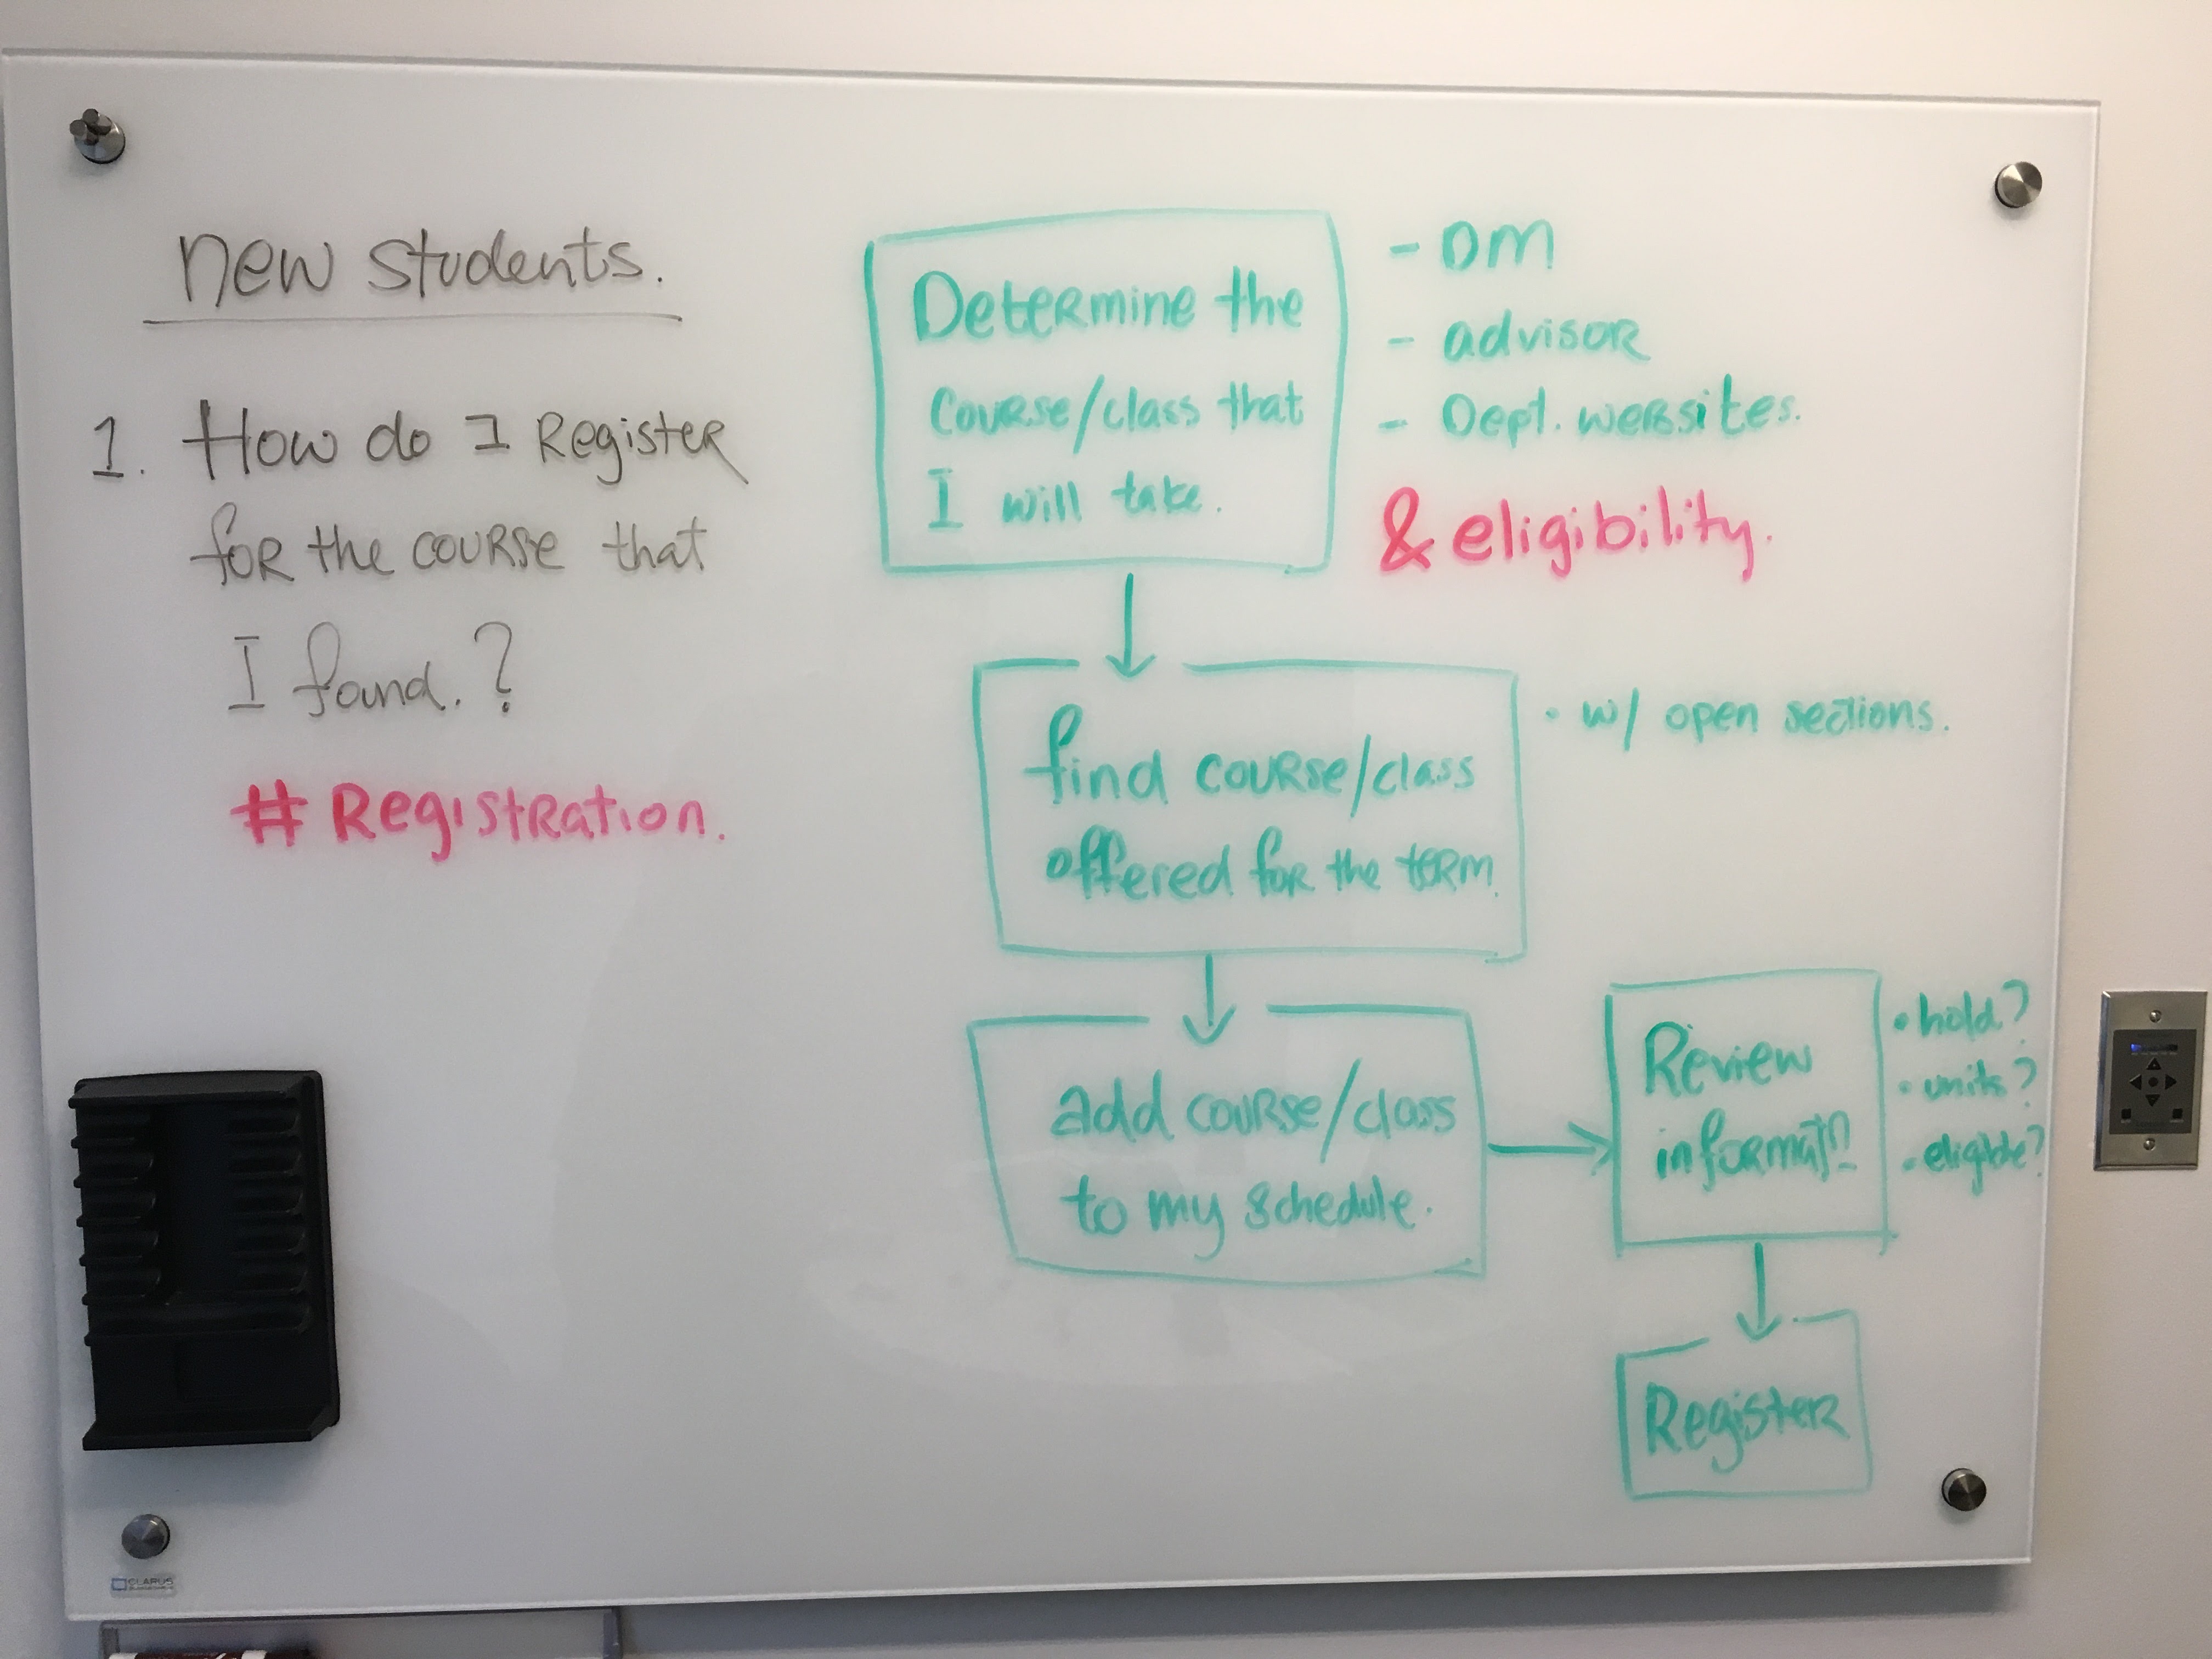 new students.
1. How do I Register
for the course that
I found.?
# Registration.
Determine the
course/class that
I will take.
- DM
- advisor
- Dept. websites.
& eligibility.
find course/class
offered for the term.
• w/ open sections.
add course/class
to my schedule.
Review
• hold?
• units?
• eligible?
Register
CLARUS